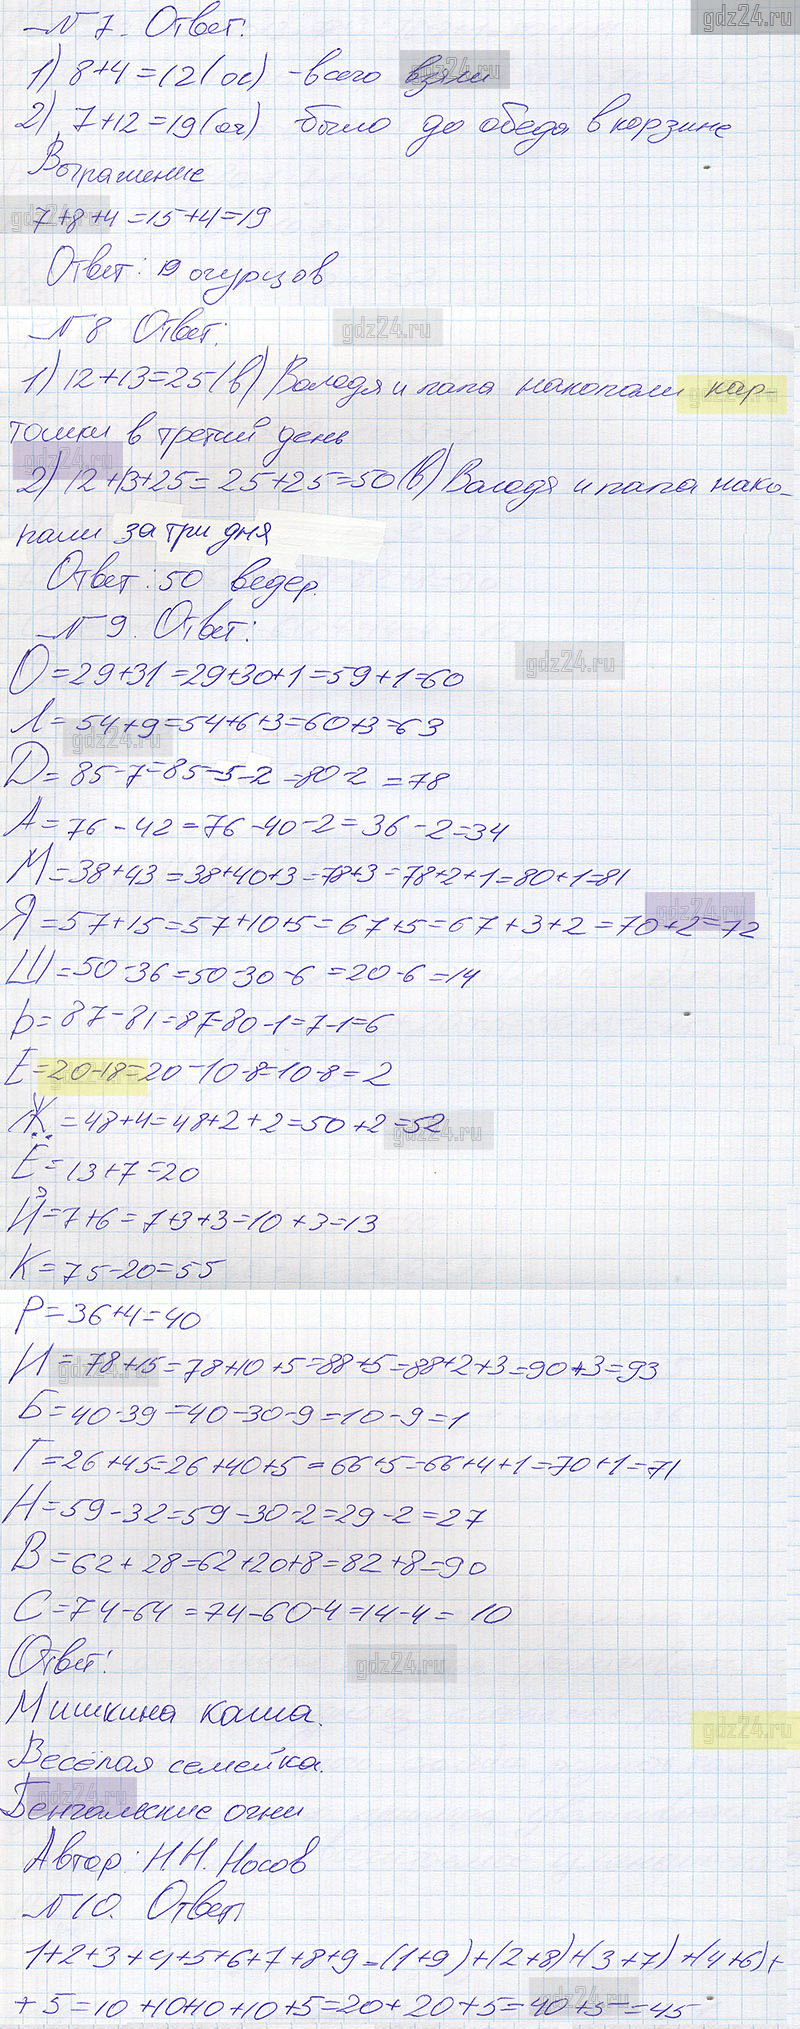 gdz24.ru
№ 7. Ответ:
1) 8+4=12(ог) - всего взяли
2) 7+12=19(ог) было до обеда в корзине
Выражение
7+8+4=15+4=19
Ответ: 19 огурцов
№ 8 Ответ:
1) 12+13=25(в) Володя и папа накопали кар-
тошки в третий день
2) 12+13+25=25+25=50(в) Володя и папа нако-
пали за три дня
Ответ: 50 ведер.
№ 9. Ответ:
О=29+31=29+30+1=59+1=60
Л=54+9=54+6+3=60+3=63
Д=85-7=85-5-2=80-2=78
А=76-42=76-40-2=36-2=34
М=38+43=38+40+3=78+3=78+2+1=80+1=81
Я=57+15=57+10+5=67+5=67+3+2=70+2=72
Ш=50-36=50-30-6=20-6=14
Ь=87-81=87-80-1=7-1=6
Е=20-18=20-10-8=10-8=2
Ж=48+4=48+2+2=50+2=52
Ё=13+7=20
Й=7+6=7+3+3=10+3=13
К=75-20=55
Р=36+4=40
И=78+15=78+10+5=88+5=88+2+3=90+3=93
Б=40-39=40-30-9=10-9=1
Г=26+45=26+40+5=66+5=66+4+1=70+1=71
Н=59-32=59-30-2=29-2=27
В=62+28=62+20+8=82+8=90
С=74-64=74-60-4=14-4=10
Ответ:
Мишкина каша.
Весёлая семейка.
Бенгальские огни
Автор: Н.Н. Носов
№ 10. Ответ:
1+2+3+4+5+6+7+8+9=(1+9)+(2+8)+(3+7)+(4+6)+
+5=10+10+10+10+5=20+20+5=40+5=45